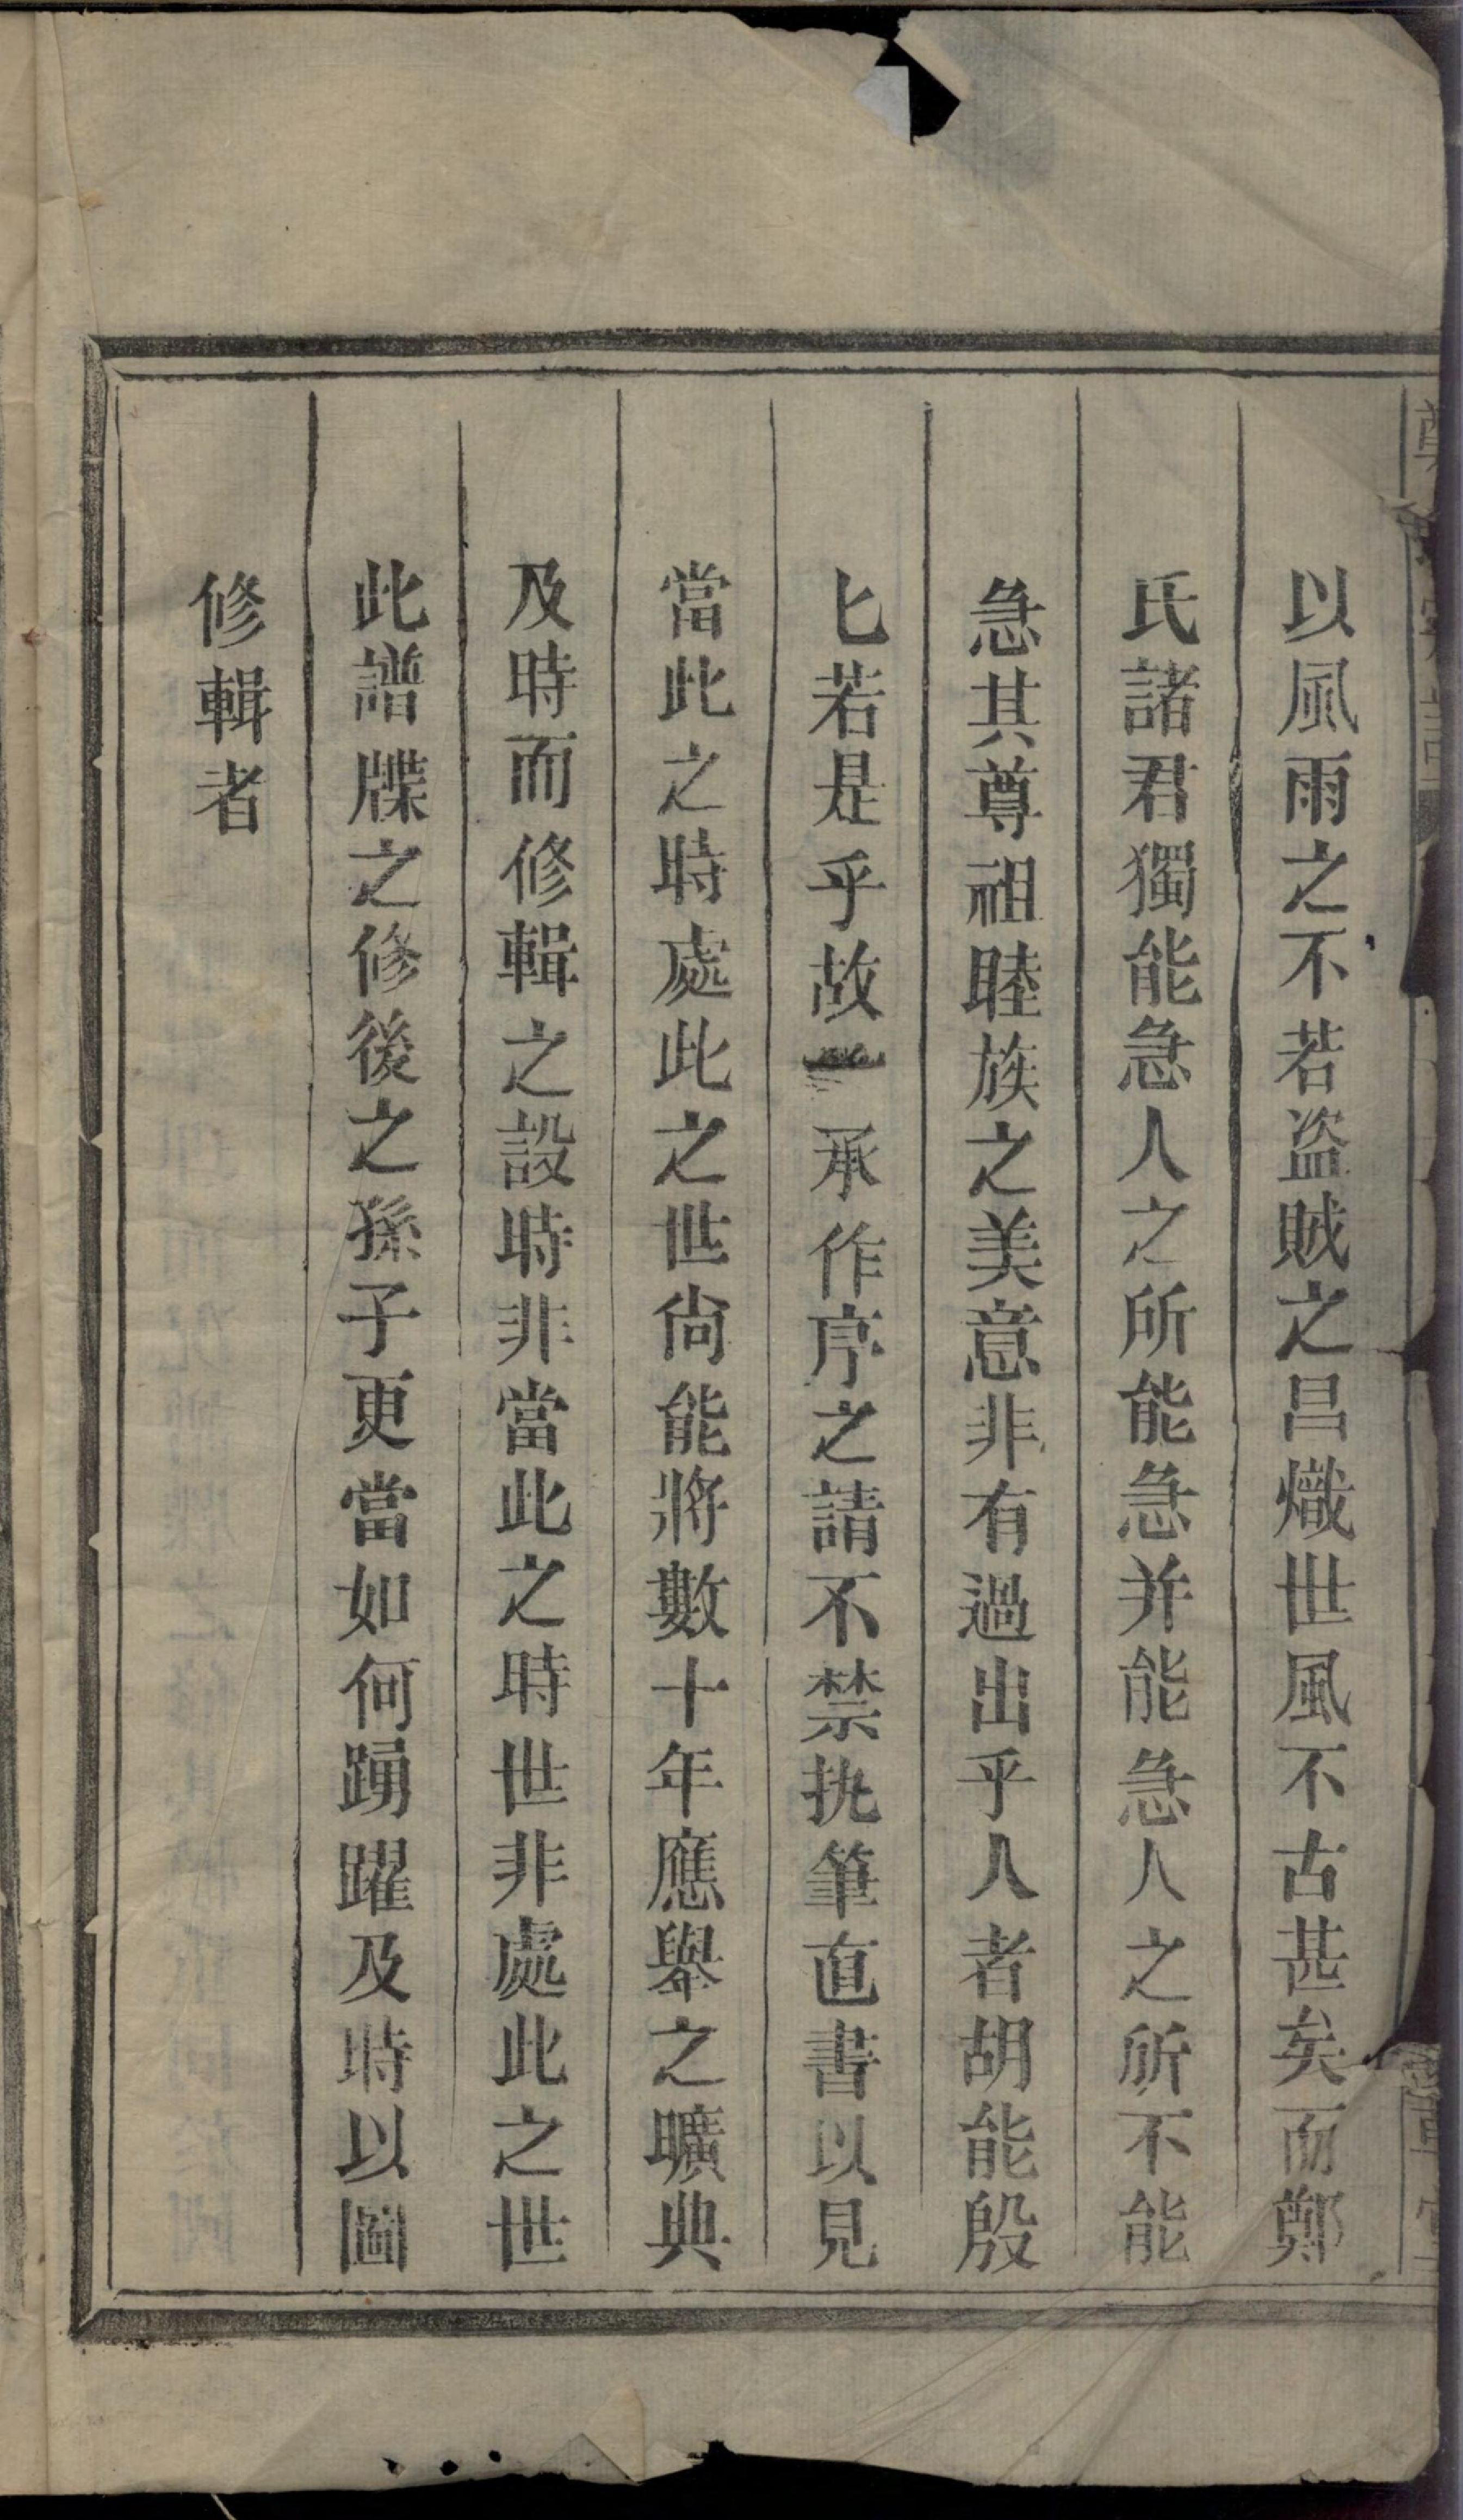 以風雨之不若盗賊之昌熾世風不古甚矣而鄭
氏諸君獨能急人之所能急并能急人之所不能
急其尊祖睦族之美意非有過出乎人者胡能殷
匕若是乎故一承作序之請不禁执筆直書以見
當此之時處此之世尙能將數十年應舉之曠典
及時而修輯之設時非當此之時世非處此之世
此譜牒之修後之孫子更當如何踴躍及時以圖
修輯者